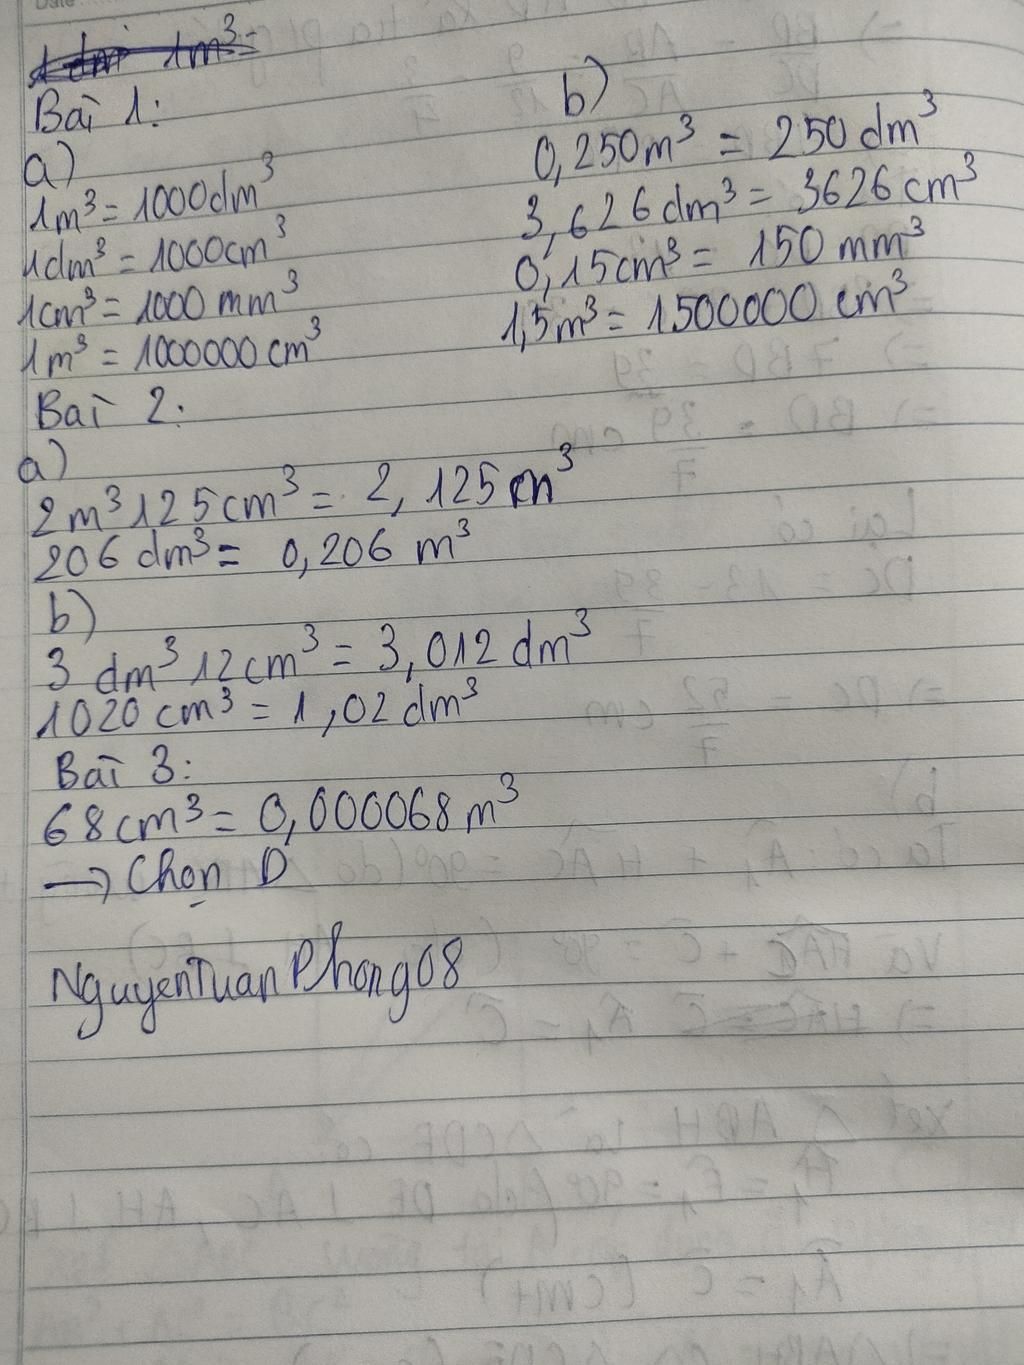 1m³=
Bài 1:
a)
1m³ = 1000dm³
1dm³ = 1000cm³
1cm³ = 1000 mm³
1m³ = 1000000 cm³
b)
0,250m³ = 250 dm³
3,626 dm³ = 3626 cm³
0,15cm³ = 150 mm³
1,5m³ = 1500000 cm³
Bài 2:
a)
2m³ 125cm³ = 2,125 m³
206 dm³ = 0,206 m³
b)
3 dm³ 12cm³ = 3,012 dm³
1020 cm³ = 1,02 dm³
Bài 3:
68cm³ = 0,000068 m³
→ Chọn D
NguyenTuanPhong08